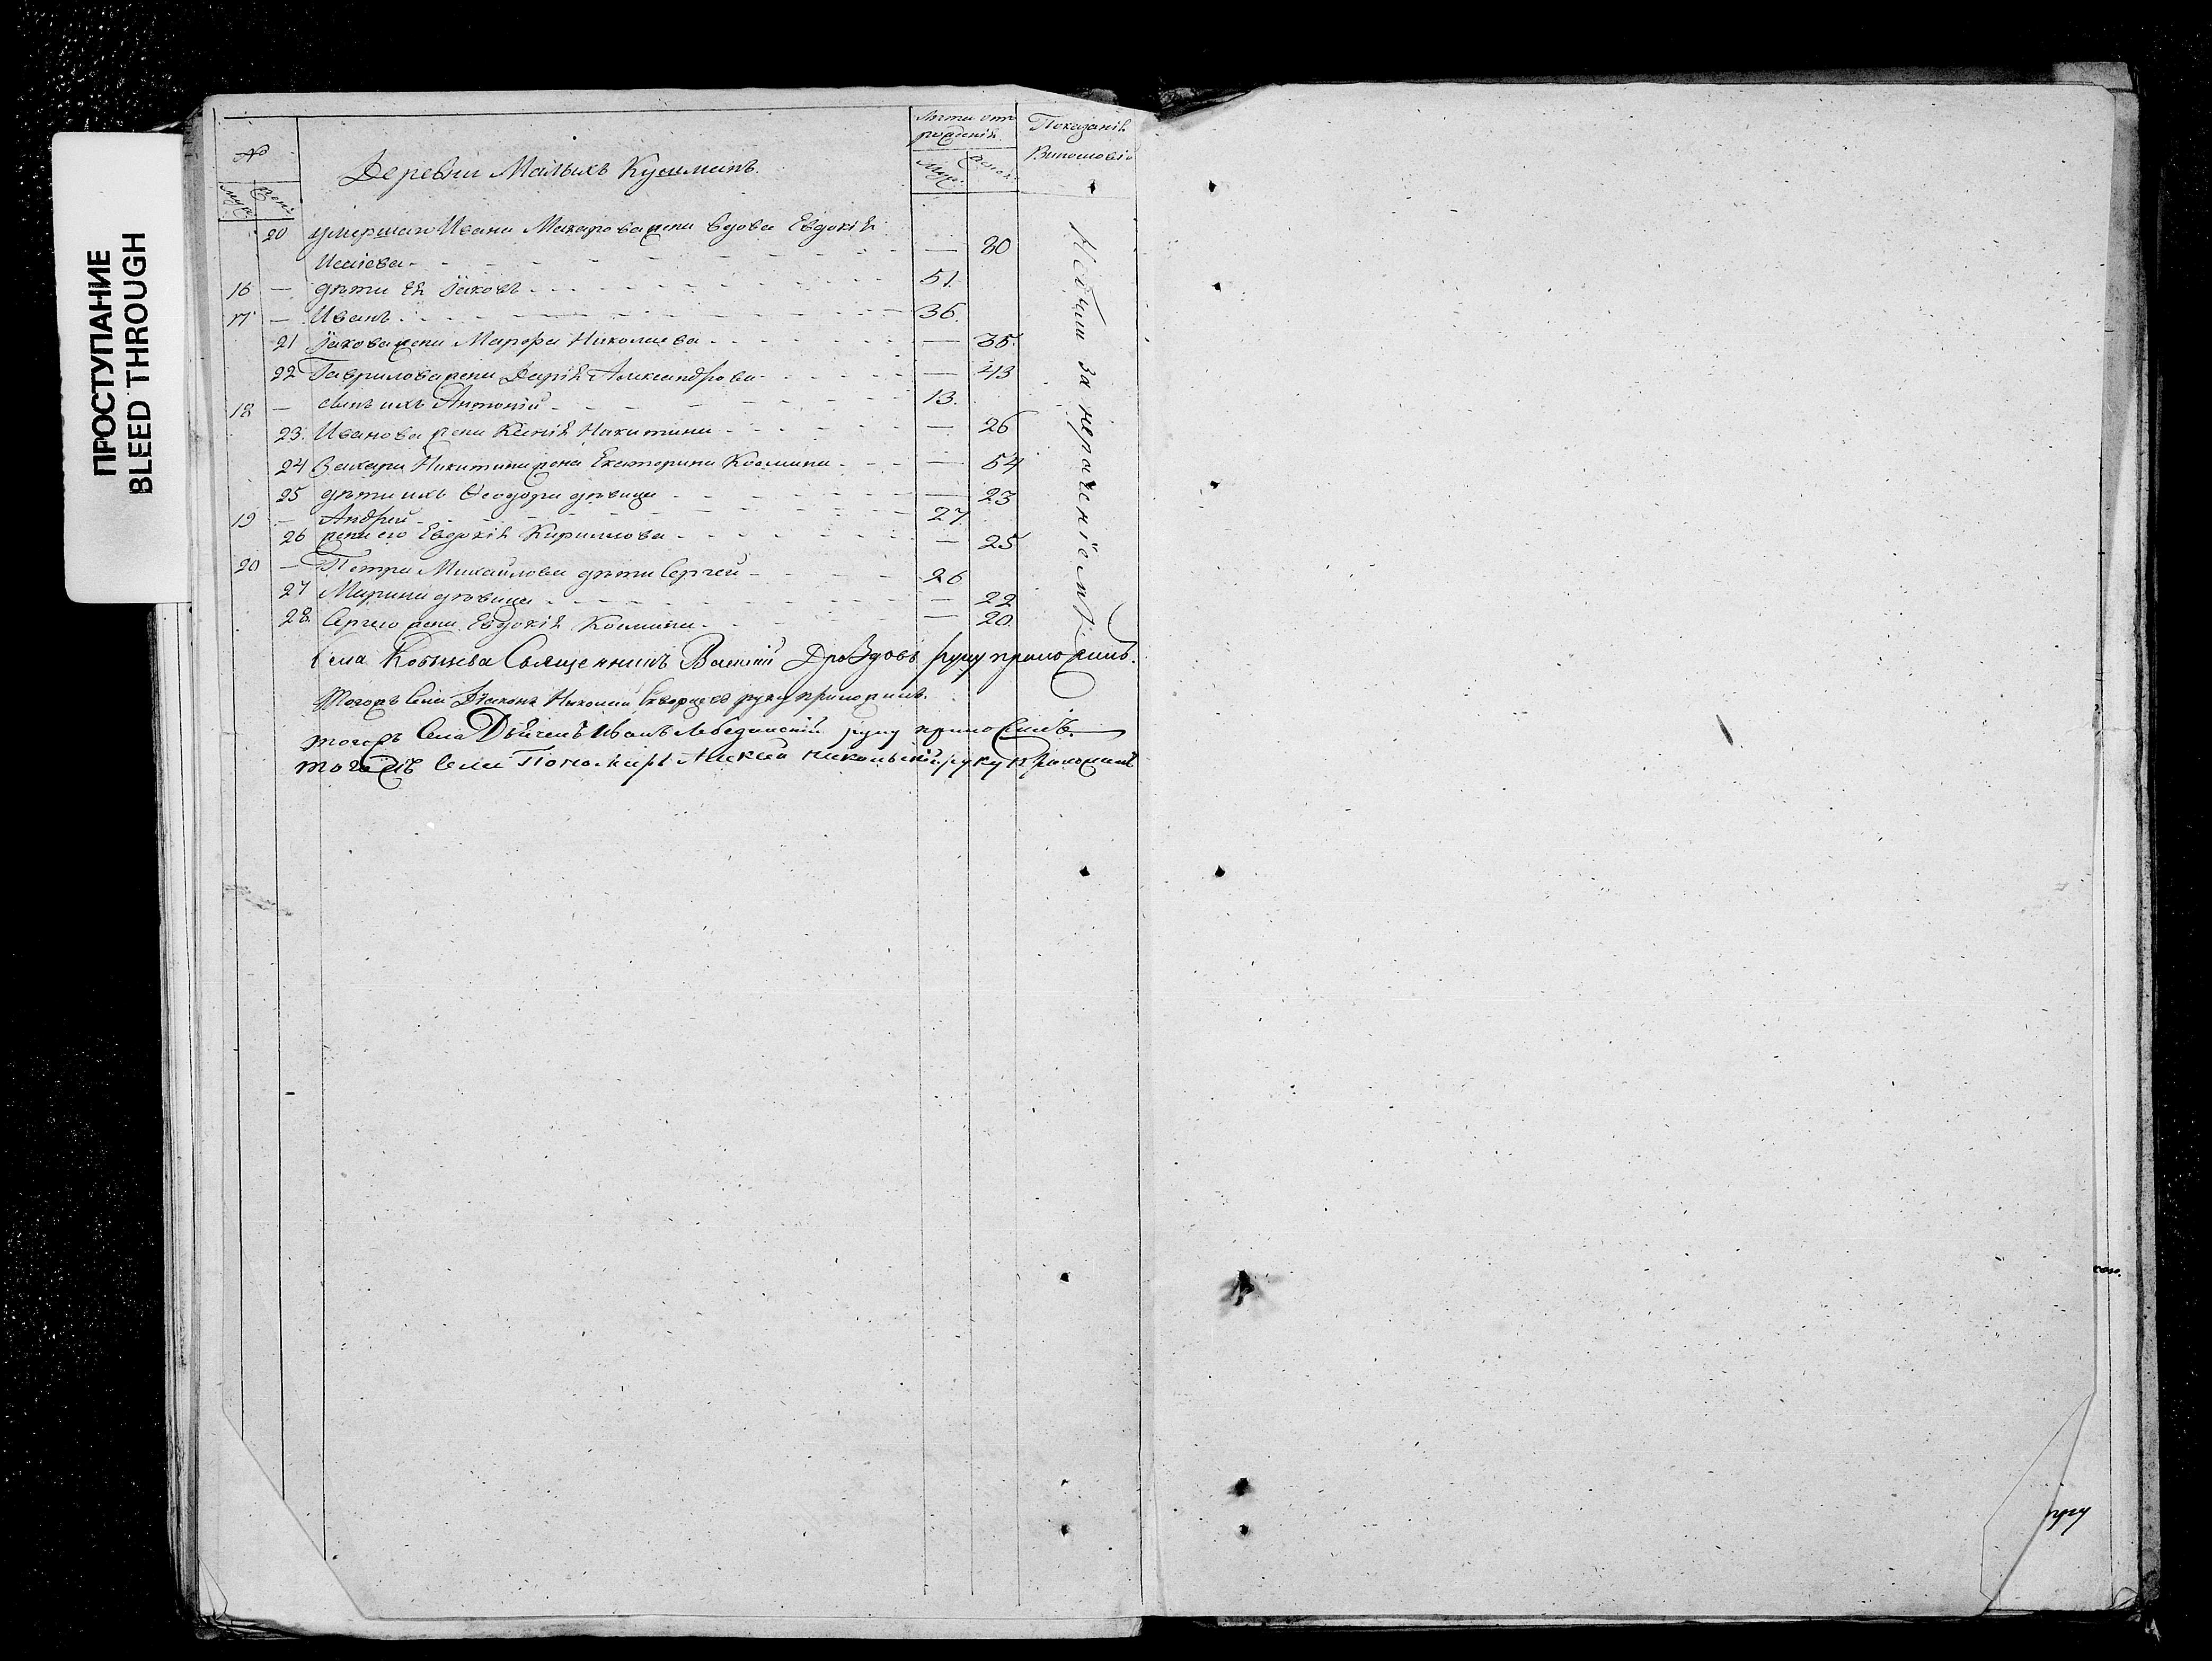 ПРОСТУПАНИЕ
BLEED THROUGH
№
Муж. Жен.
Деревни Малыхъ Кузьминъ.
Лѣта отъ рожденія
Муж. Женск.
Показаніе
20 умершаго Ивана Макарова жена вдова Евдокія
Исаіева — 80
16 — дѣти ея Іаковъ 51.
17 — Иванъ 36.
21 Іакова жена Марѳа Николаева — 35.
22 Гаврилова жена Дарія Александрова — 43
18 — сынъ ихъ Антоній 13.
23. Иванова жена Ксенія Никитина — 26
24 Захара Никитина жена Екатерина Космина — 54
25 дѣти ихъ Ѳеодора дѣвица — 23
19 — Андрей 27.
26 жена его Евдокія Кириллова — 25
20 — Петра Михайлова дѣти Сергей 26
27 Марина дѣвица — 22
28. Сергея жена Евдокія Космина — 20.
Не были за нераченіемъ
Села Священникъ Василій Дроздовъ руку приложилъ.
Тогожъ Села Діаконъ Николай Скворцовъ руку приложилъ.
тогожъ Села Дьячекъ Иванъ Лебединскій руку приложилъ.
тогожъ Села Пономарь Алексей Никольский руку приложилъ